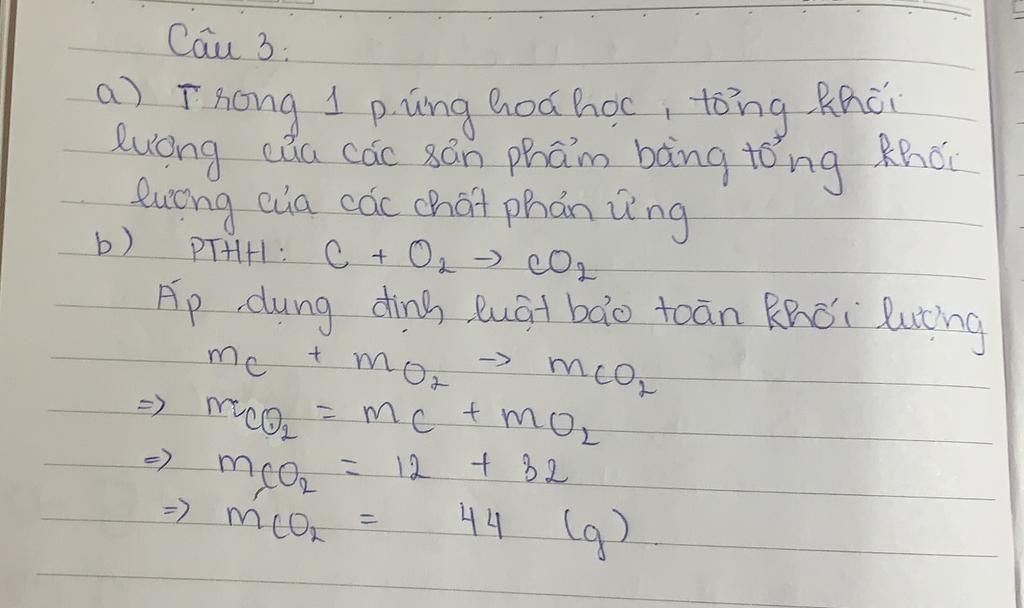 Câu 3:
a) Trong 1 p.ứng hoá học, tổng khối
lượng của các sản phẩm bằng tổng khối
lượng của các chất phản ứng
b) PTHH: C + O₂ → CO₂
Áp dụng định luật bảo toàn khối lượng
mC + mO₂ → mCO₂
=> mCO₂ = mC + mO₂
=> mCO₂ = 12 + 32
=> mCO₂ = 44 (g)